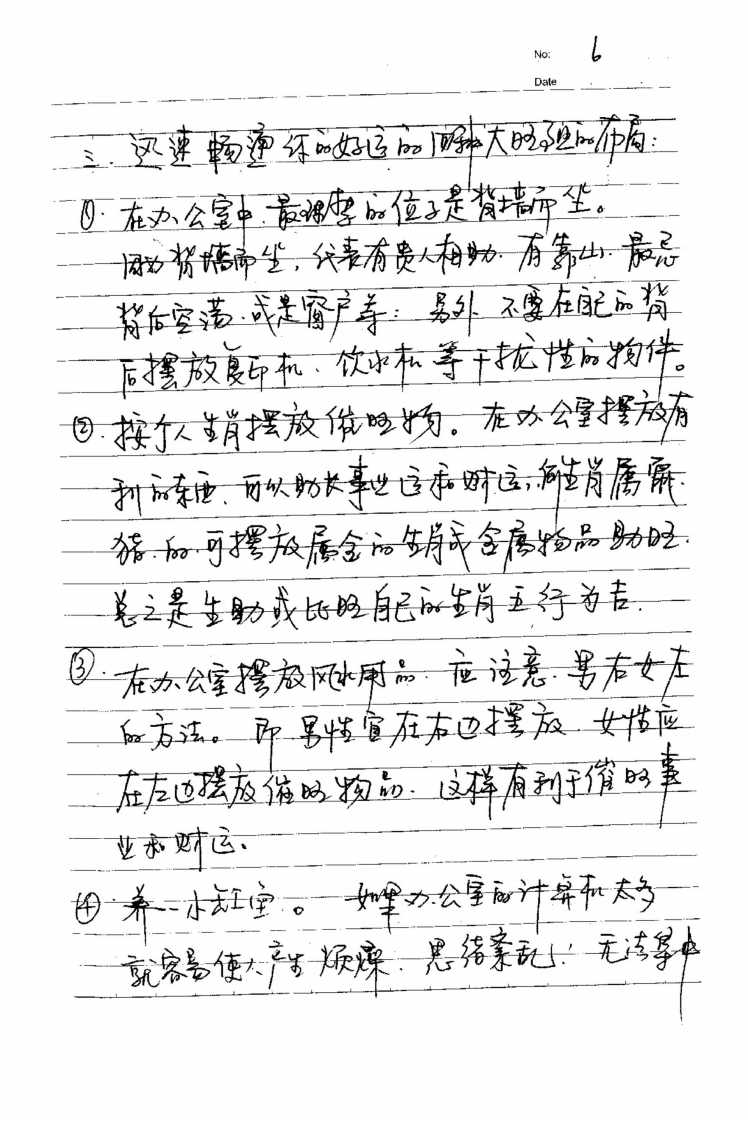 No: 6
Date
三. 迅速畅通你的好运的四种大旺的布局:
①. 在办公室中 最理想的位子是背墙而坐。
因为背墙而坐, 代表有贵人相助. 有靠山. 最忌
背后空荡. 或是窗户等; 另外 不要在自己的背
后摆放复印机、饮水机等干扰性的物件。
②. 按个人生肖摆放催旺物。在办公室摆放有
利的东西、可以助长事业运和财运, 生肖属鼠.
猪. 的 可摆放属金的生肖或金属物品助旺.
总之是生助或比旺自己的生肖五行为吉.
③. 在办公室摆放风水用品. 应注意. 男右女左
的方法。即 男性宜在右边摆放 女性应
在左边摆放催旺物品. 这样有利于催旺事
业和财运。
④ 养一小缸鱼。如果办公室的计算机太多
就容易使人产生烦燥、思绪紊乱; 无法集中